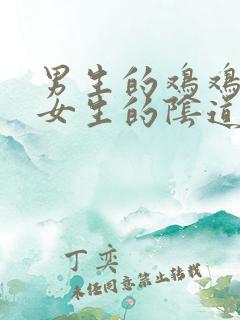 男生的鸡鸡
女生的陰道
丁奕
未经同意禁止转载